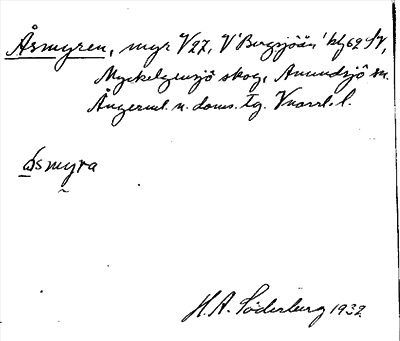 Åsmyren, myr V27, V Bergsjöån' kbl 62 AV,
Myckelgensjö skog, Anundsjö sn.
Ångerml. n. doms. tg. Vnorrl. l.
åsmyra
H.A. Söderberg 1932